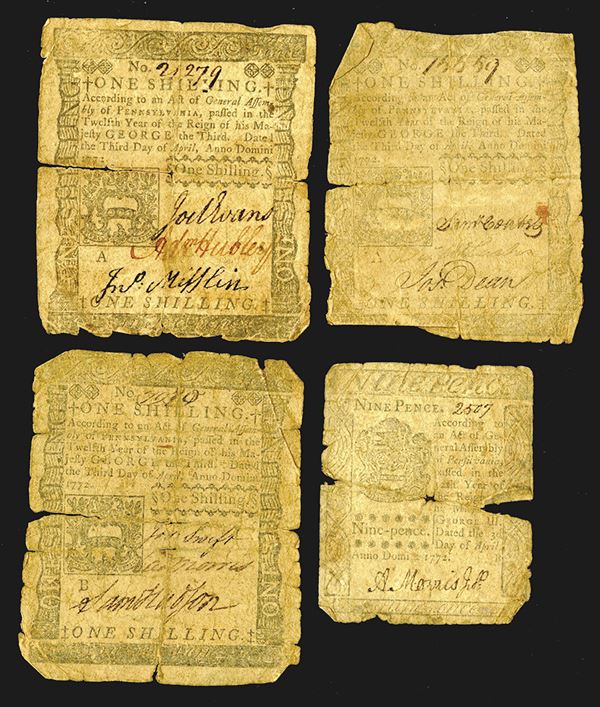 No. 21279
‡ONE SHILLING.‡
According to an Act of General Assem-
bly of PENNSYLVANIA, passed in the
Twelfth Year of the Reign of his Ma-
jesty GEORGE the Third. Dated
the Third Day of April, Anno Domini
1772.
§One Shilling.§
Joel Evans
Adm Hubley
A
Jno. Mifflin
‡ONE SHILLING.‡
ONE
No. 13559
‡ONE SHILLING.‡
According to an Act of General Assem-
bly of PENNSYLVANIA, passed in the
Twelfth Year of the Reign of his Ma-
jesty GEORGE the Third. Dated
the Third Day of April, Anno Domini
1772.
§One Shilling.§
Saml Coates
A
Jos Dean
‡ONE SHILLING.
No.
‡ONE SHILLING.‡
According to an Act of General Assem-
bly of PENNSYLVANIA, passed in the
Twelfth Year of the Reign of his Ma-
jesty GEORGE the Third. Dated
the Third Day of April, Anno Domini
1772.
§One Shilling.§
Jos Swift
Morris
B
Saml Hudson
‡ONE SHILLING.‡
NINE PENCE
NINE PENCE. 2507
According to
an Act of Ge-
neral Assembly
of Pennsylvania,
passed in the
Year of
Reign
of his Ma
GEORGE III.
Nine-pence. Dated the 3d
Day of April,
Anno Domini 1772.
A. Morris Jr.